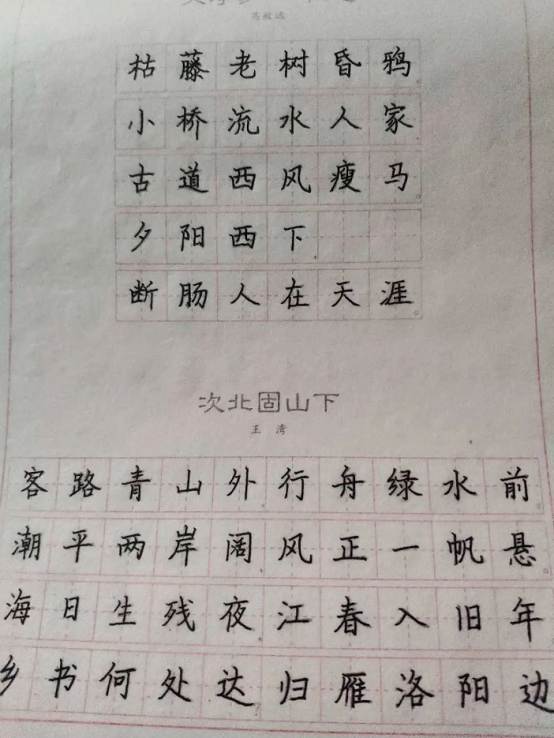 马致远
枯藤老树昏鸦
小桥流水人家
古道西风瘦马
夕阳西下
断肠人在天涯
次北固山下
王湾
客路青山外行舟绿水前。
潮平两岸阔风正一帆悬。
海日生残夜江春入旧年
乡书何处达归雁洛阳边